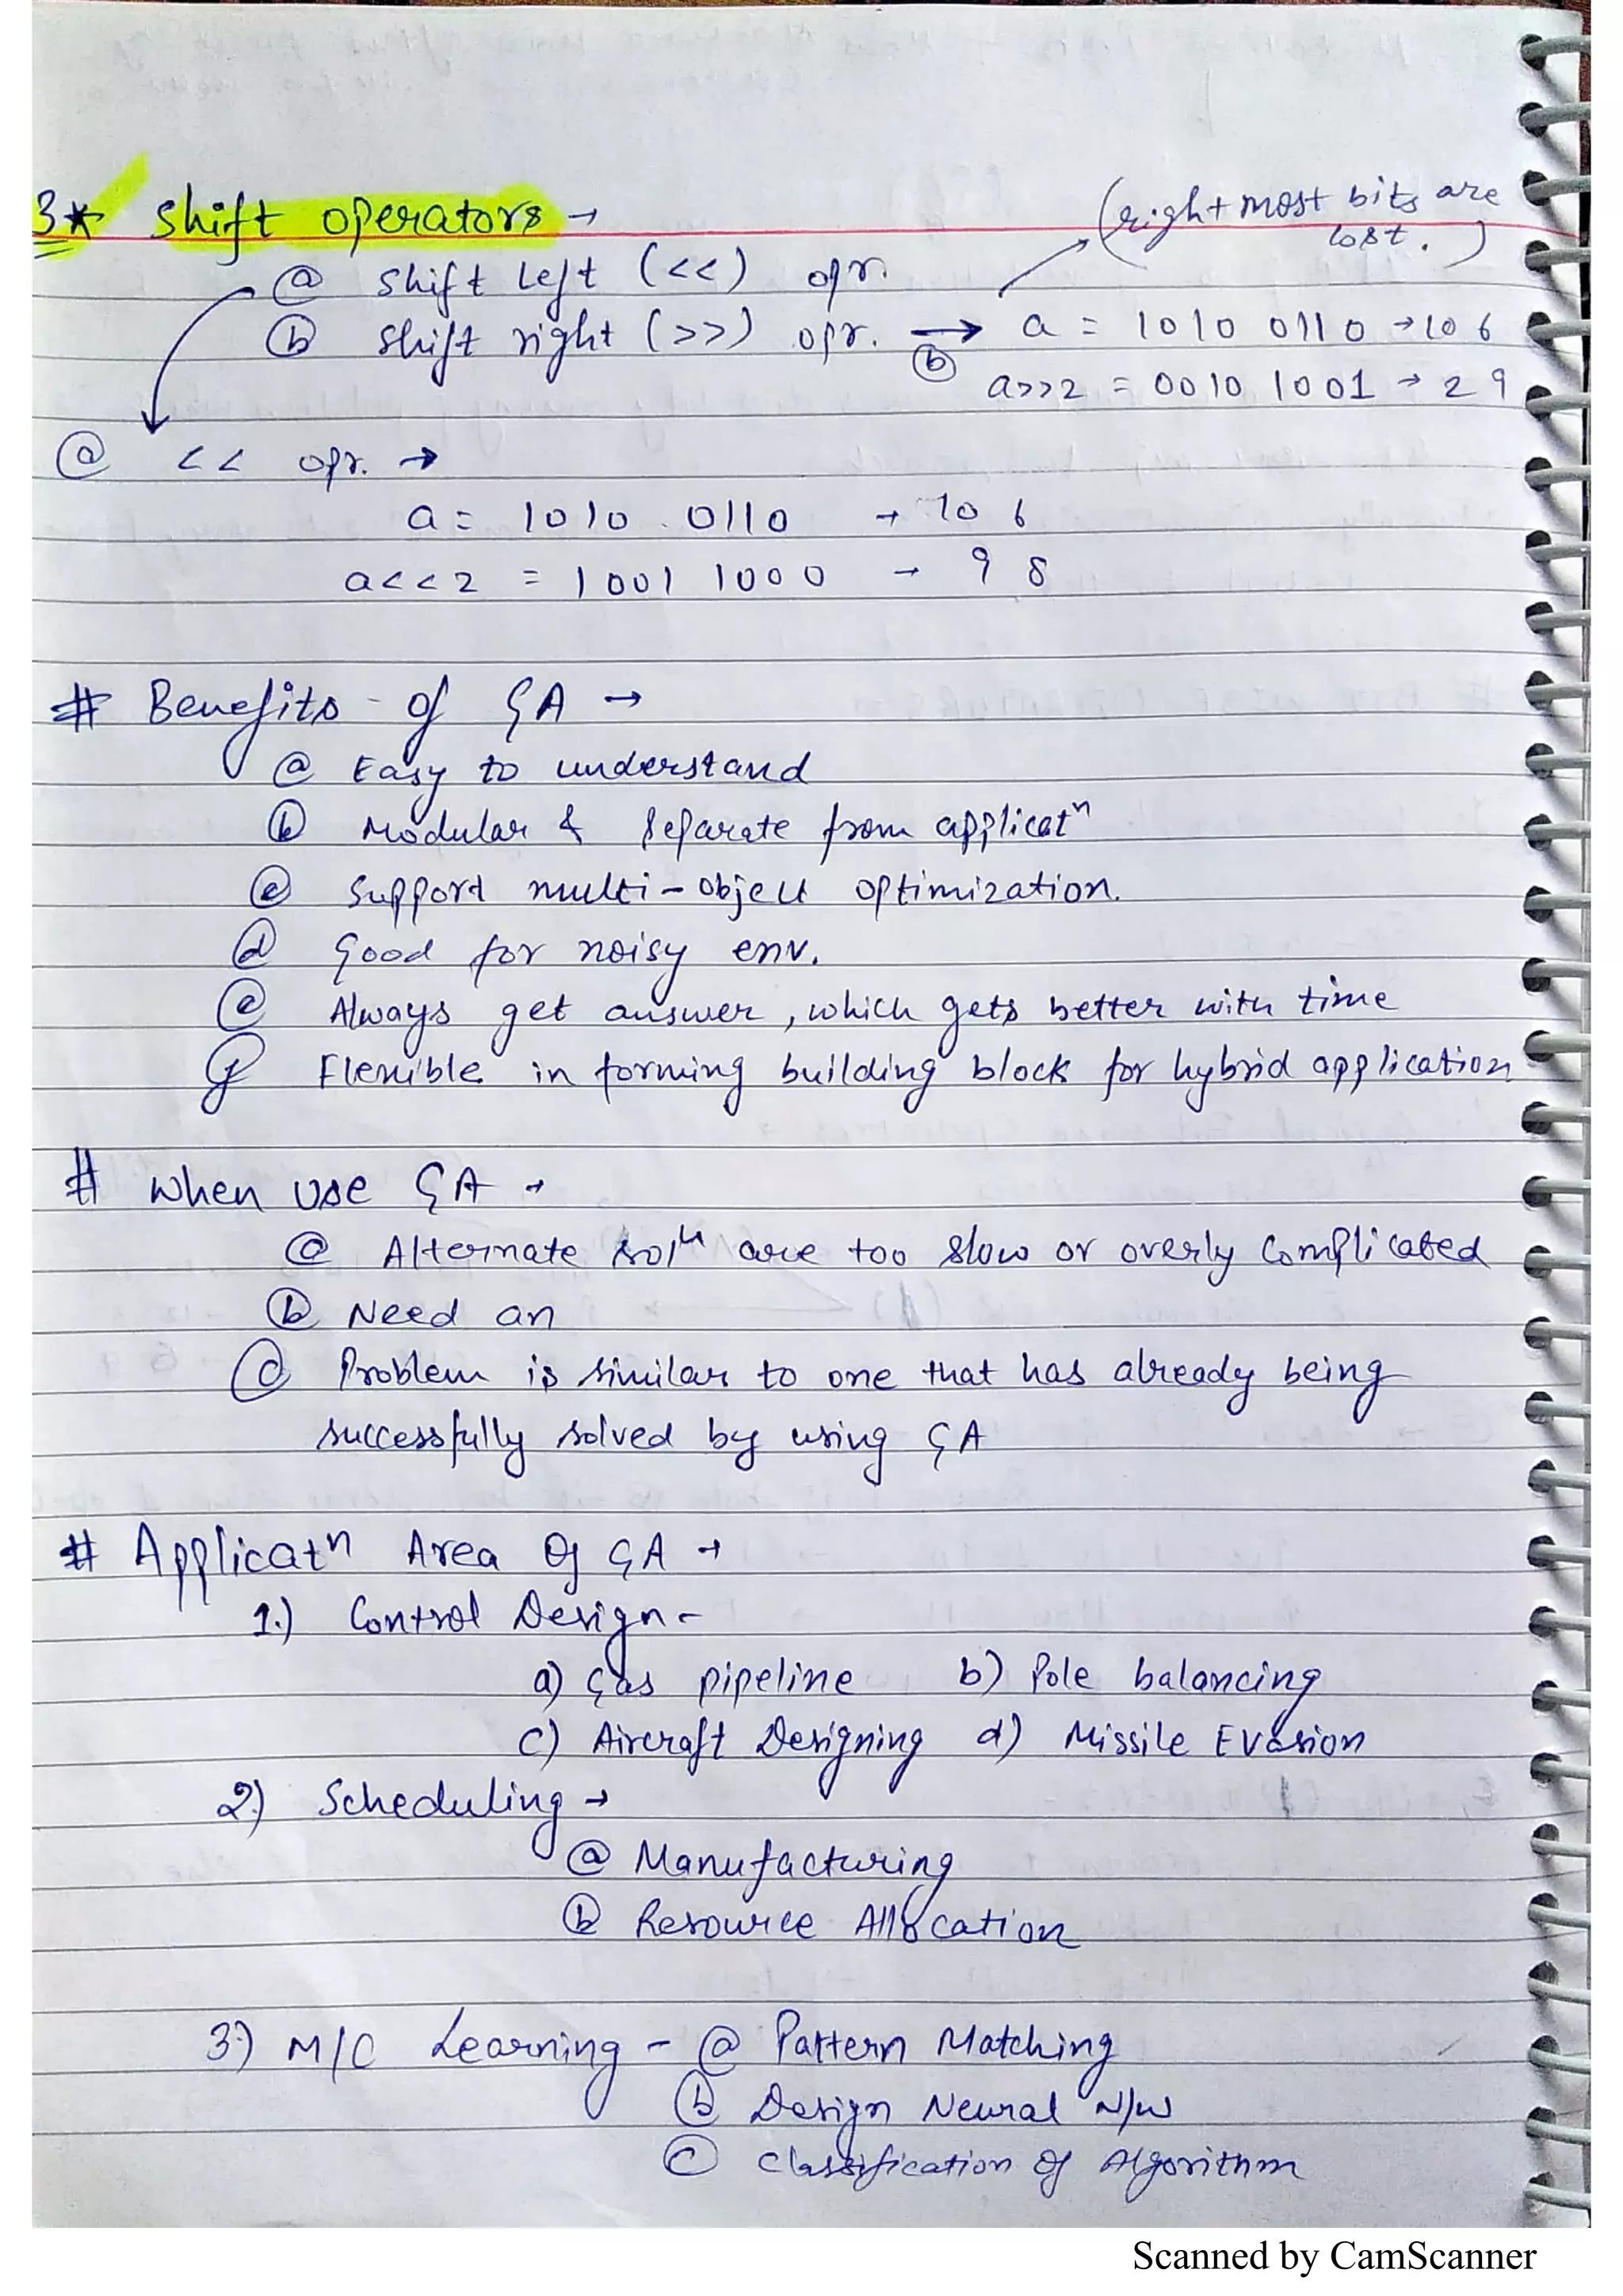 3* Shift operators →
(right most bits are
lost.)
ⓐ Shift Left (<<) opr.
ⓑ Shift right (>>) opr. → a = 1010 0110 → 10 6
ⓑ a>>2 = 0010 1001 → 2 9
ⓐ << opr. →
a = 1010 0110 → 10 6
a<<2 = 1001 1000 → 9 8
# Benefits of GA →
ⓐ Easy to understand
ⓑ Modular & Separate from applicatⁿ
ⓒ Support multi-object optimization.
ⓓ Good for noisy env.
ⓔ Always get answer, which gets better with time
ⓕ Flexible in forming building block for hybrid application
# When use GA →
ⓐ Alternate solⁿ are too slow or overly complicated
ⓑ Need an
ⓒ Problem is similar to one that has already being
successfully solved by using GA
# Applicatⁿ Area Of GA →
1.) Control Design -
a) Gas pipeline b) Pole balancing
c) Aircraft Designing d) Missile Evasion
2) Scheduling →
ⓐ Manufacturing
ⓑ Resource Allocation
3) M/C Learning - ⓐ Pattern Matching
ⓑ Design Neural N/W
ⓒ Classification Of Algorithm
Scanned by CamScanner